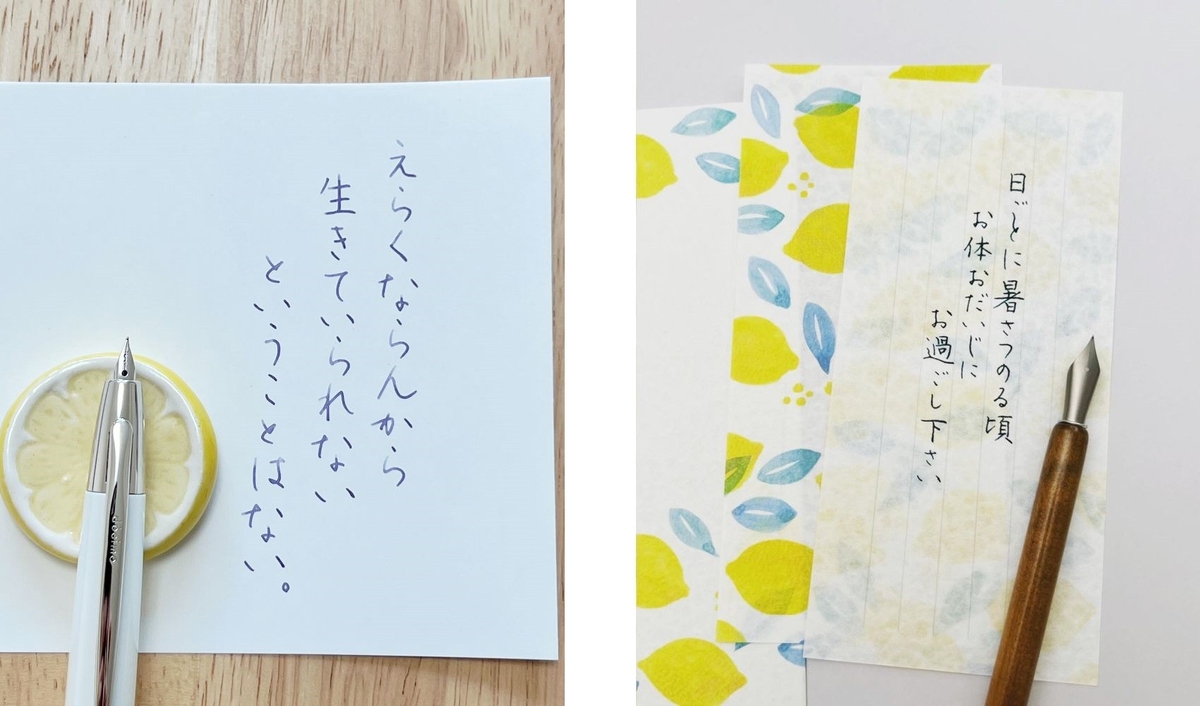 えらくならんから
生きていられない
ということはない。
日ごとに暑さつのる頃
お体おだいじに
お過ごし下さい